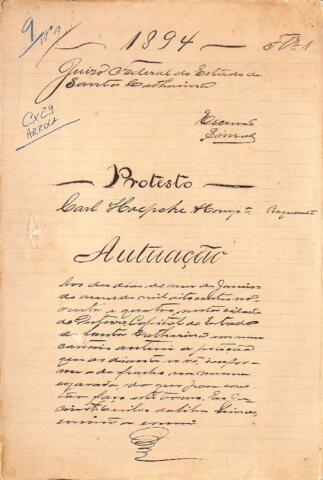 9 Nº 9
1894
Fls 1
Juizo Federal do Estado de
Santa Catharina
CX29
Escrivão
Protesto
Carl Hoepcke & Comp.ª Requerente
Autuação
Aos dez dias do mez de Janeiro
do anno de mil oito centos no-
venta e quatro, nesta cidade
do Desterro, Capital do Estado
de Santa Catharina em meu
cartorio autuei a petição
que ao diante se vê
do que para cons-
tar faço este termo. Eu,
escrivão o escrevi